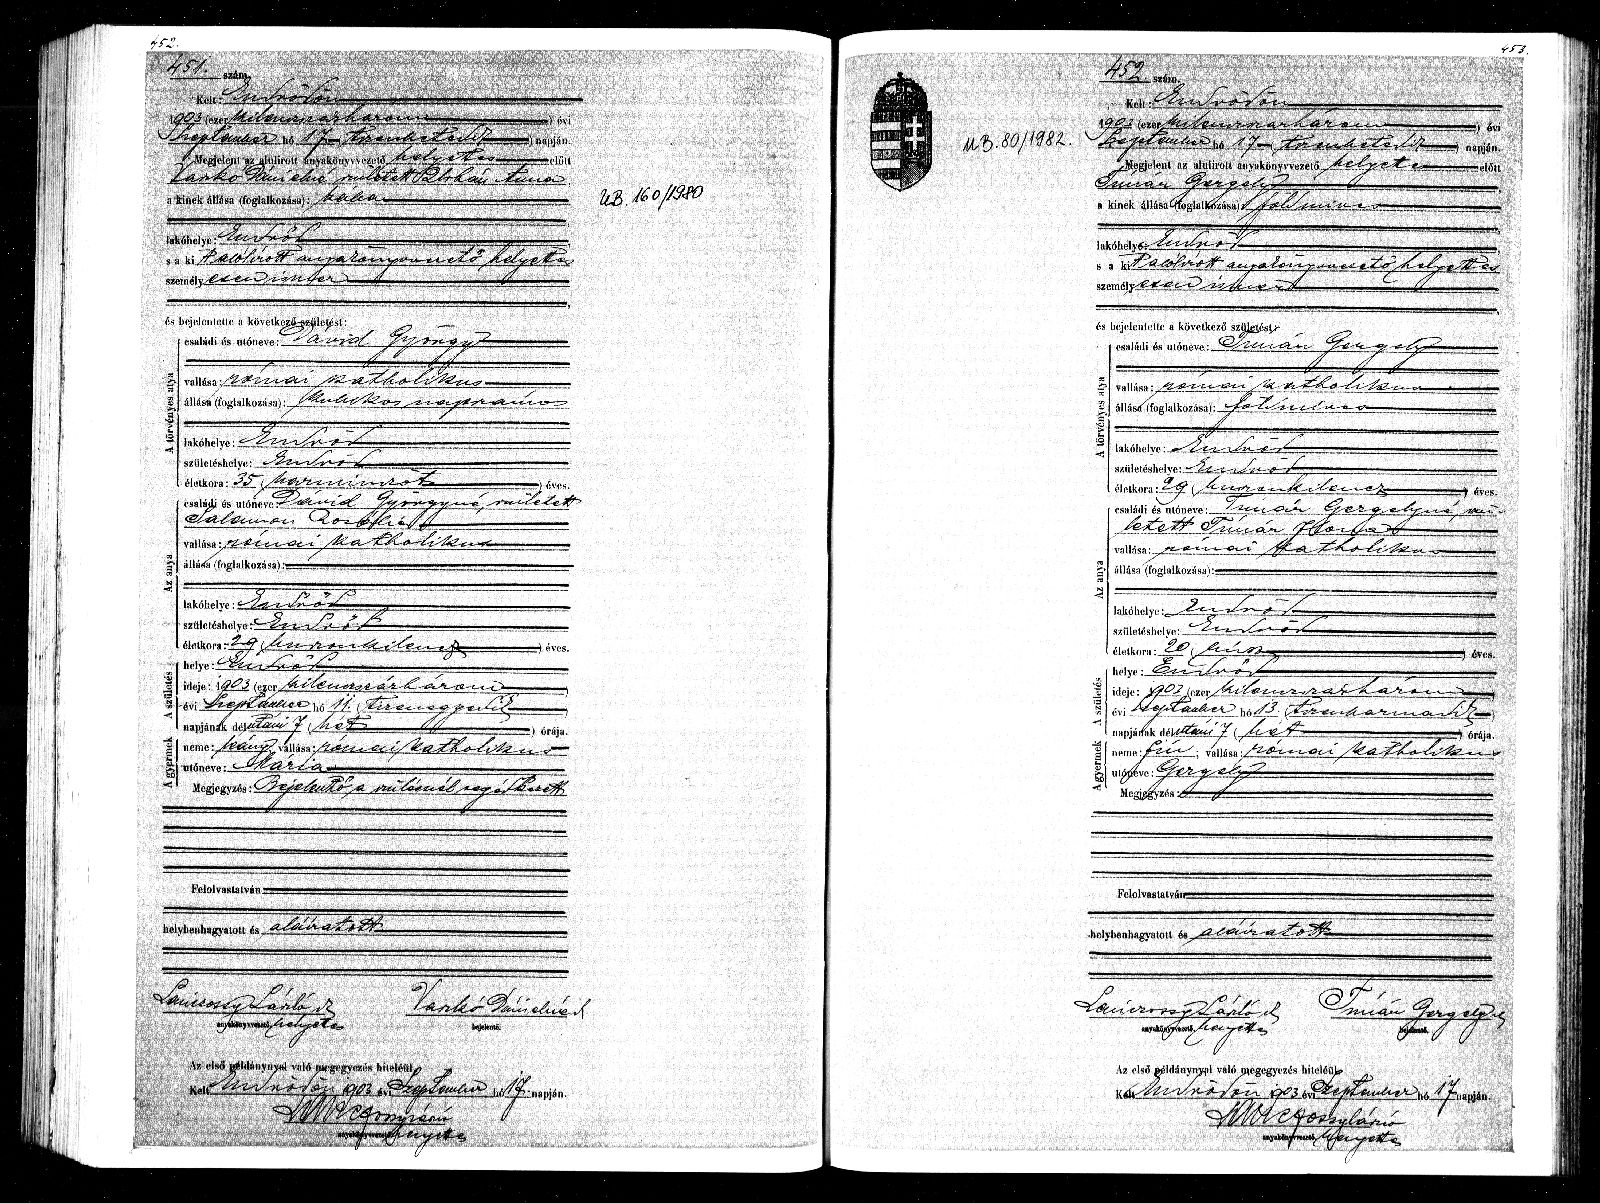 452.
451. szám.
Kelt: Endrődön
1903 (ezer kilenczszázhárom) évi
Szeptember hó 17 tizenhetedik) napján.
Megjelent az alulirott anyakönyvvezető helyettes előtt
Varkó Dánielné született Anna
a kinek állása (foglalkozása): bába
lakóhelye: Endrőd
s a ki t alólirott anyakönyvvezető helyettes
személyesen ismer
és bejelentette a következő születést:
A törvényes atya
családi és utóneve: Dávid György
vallása: római katholikus
állása (foglalkozása): kubikos napszámos
lakóhelye: Endrőd
születéshelye: Endrőd
életkora: 35 (harminczöt) éves.
Az anya
családi és utóneve: Dávid Györgyné, született
Salamon Rozália
vallása: római katholikus
állása (foglalkozása):
lakóhelye: Endrőd
születéshelye: Endrőd
életkora: 29 (huszonkilencz) éves.
A születés
helye: Endrőd
ideje: 1903 (ezer kilenczszázhárom
évi Szeptember hó 11. (tizenegyedik
napjának délutáni 7 (hét) órája.
A gyermek
neme: leány; vallása: római katholikus
utóneve: Mária
Megjegyzés: Bejelentő a szülésnél segédkezett
Felolvastatván
helybenhagyatott és aláiratott
László sk Varkó Dánielné sk
anyakönyvvezető, helyettes bejelentő.
Az első példánynyal való megegyezés hiteléül
Kelt Endrődön 1903 évi Szeptember hó 17. napján.
anyakönyvvezető. helyettes
UB. 160/1980
453.
452 szám.
Kelt: Endrődön
1903 (ezer kilenczszázhárom) évi
Szeptember hó 17 (tizenhetedik) napján.
Megjelent az alulirott anyakönyvvezető helyettes előtt
Timár Gergely
a kinek állása (foglalkozása): földmives
lakóhelye: Endrőd
s a ki t alólirott anyakönyvvezető helyettes
személyesen ismer
és bejelentette a következő születést:
A törvényes atya
családi és utóneve: Timár Gergely
vallása: római katholikus
állása (foglalkozása): földmives
lakóhelye: Endrőd
születéshelye: Endrőd
életkora: 29 (huszonkilencz) éves.
Az anya
családi és utóneve: Timár Gergelyné, szü-
letett Timár Ilona
vallása: római katholikus
állása (foglalkozása):
lakóhelye: Endrőd
születéshelye: Endrőd
életkora: 20 (húsz) éves.
A születés
helye: Endrőd
ideje: 1903 (ezer kilenczszázhárom
évi Szeptember hó 13 (tizenharmadik)
napjának délutáni 7 (hét) órája.
A gyermek
neme: fiú; vallása: római katholikus
utóneve: Gergely
Megjegyzés:
Felolvastatván
helybenhagyatott és aláiratott
László sk Timár Gergely sk
anyakönyvvezető, helyettes bejelentő.
Az első példánynyal való megegyezés hiteléül
Kelt Endrődön 1903 évi Szeptember hó 17 napján.
anyakönyvvezető. helyettes
UB. 80/1982.